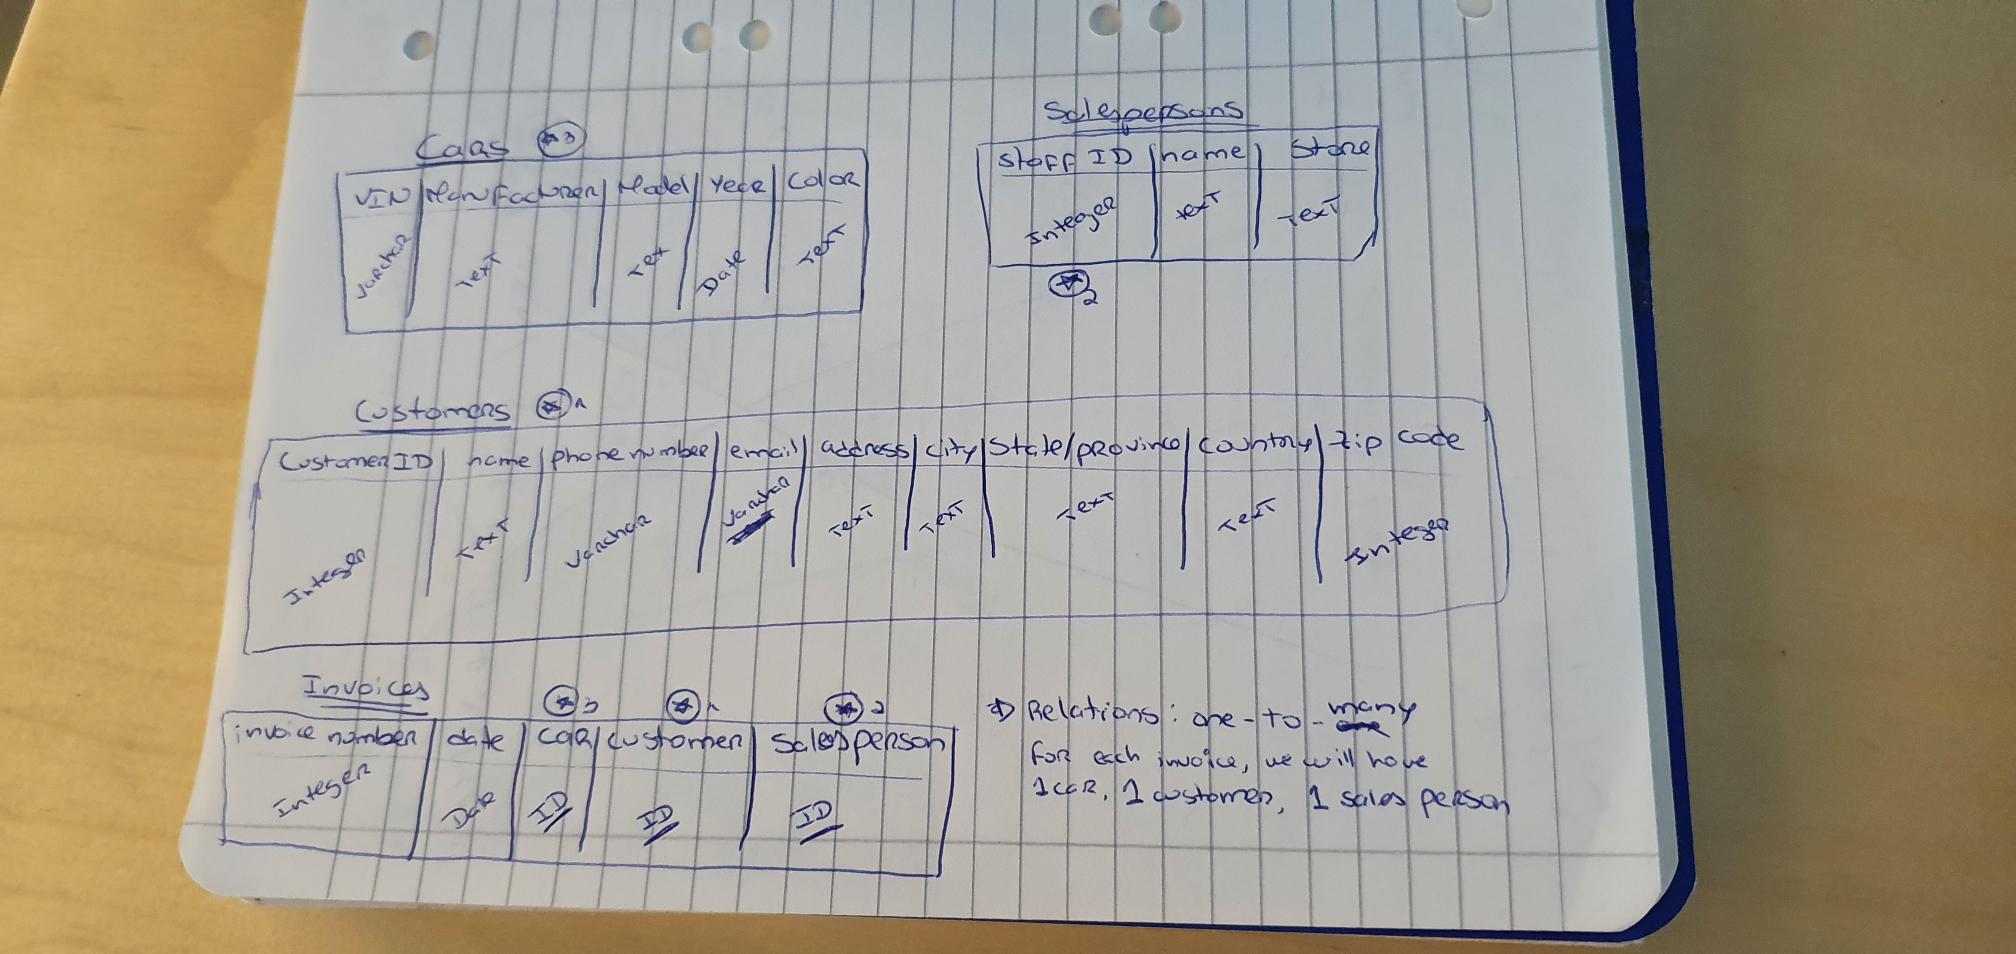 Cars ★3
VIN Manufacturer Model Year Color
Varchar Text Text Date Text
Salespersons
Staff ID name Store
Integer text Text
★2
Customers ★1
Customer ID name phone number email address city State/province Country zip code
Integer Text Varchar Varchar Text Text Text Text Integer
Invoices
★3 ★1 ★2
invoice number date car customer Salesperson
Integer Date ID ID ID
Relations: one-to-many
For each invoice, we will have
1 car, 1 customer, 1 sales person